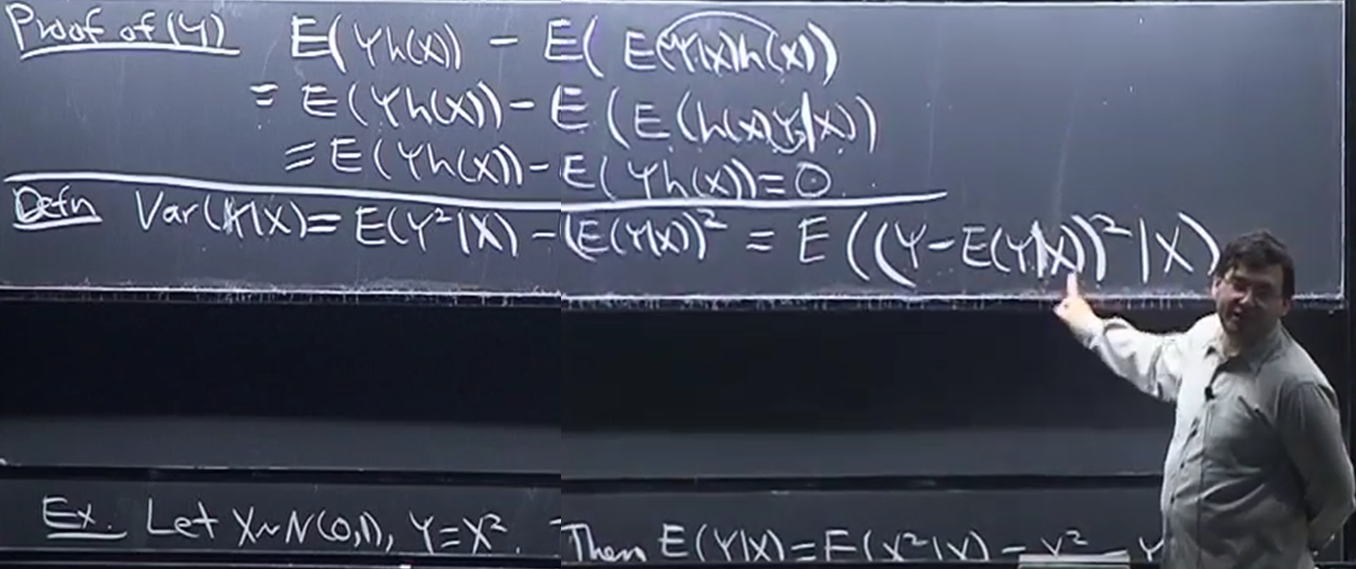 Proof of (4) E(Yh(X)) - E( E(Y|X)h(X))
= E(Yh(X)) - E (E(h(X)Y|X))
= E(Yh(X)) - E(Yh(X)) = 0.
Defn Var(Y|X) = E(Y²|X) - (E(Y|X))² = E((Y-E(Y|X))²|X)
Ex. Let X~N(0,1), Y=X². Then E(Y|X)=E(X²|X)=X²=Y